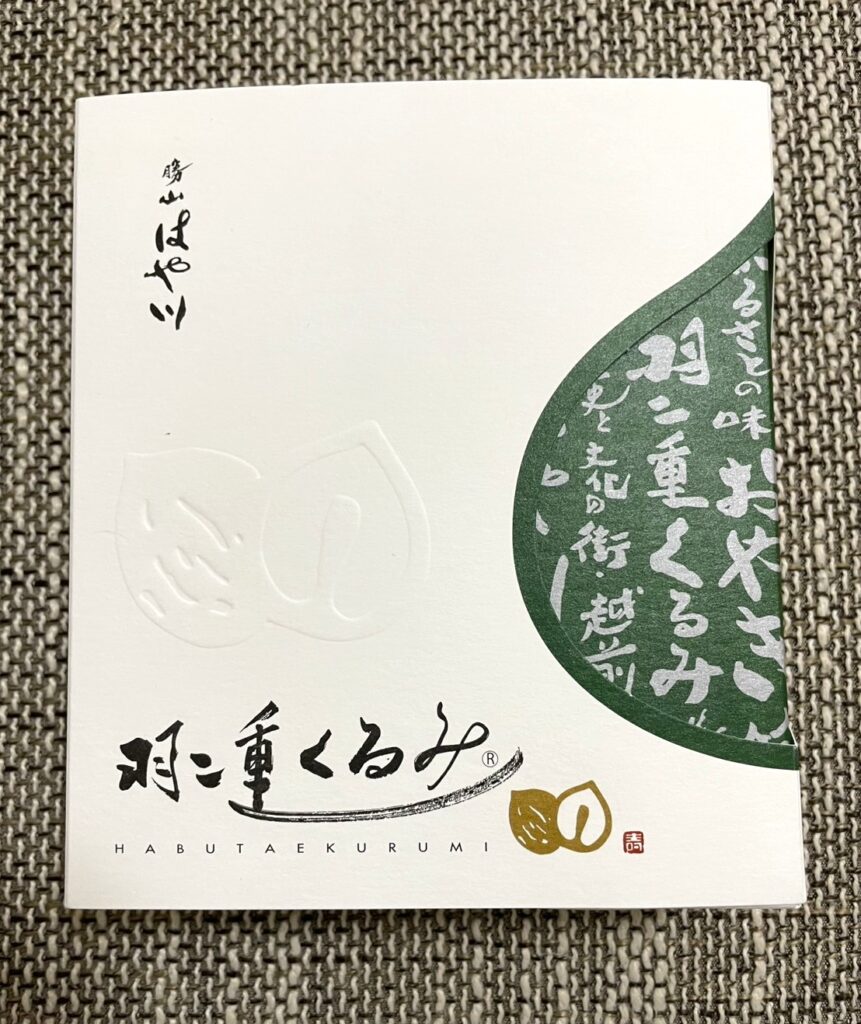 勝山 はや川
ふるさとの味
おやき
羽二重くるみ
史と文化の街・越前
羽二重くるみ®
HABUTAEKURUMI
寿